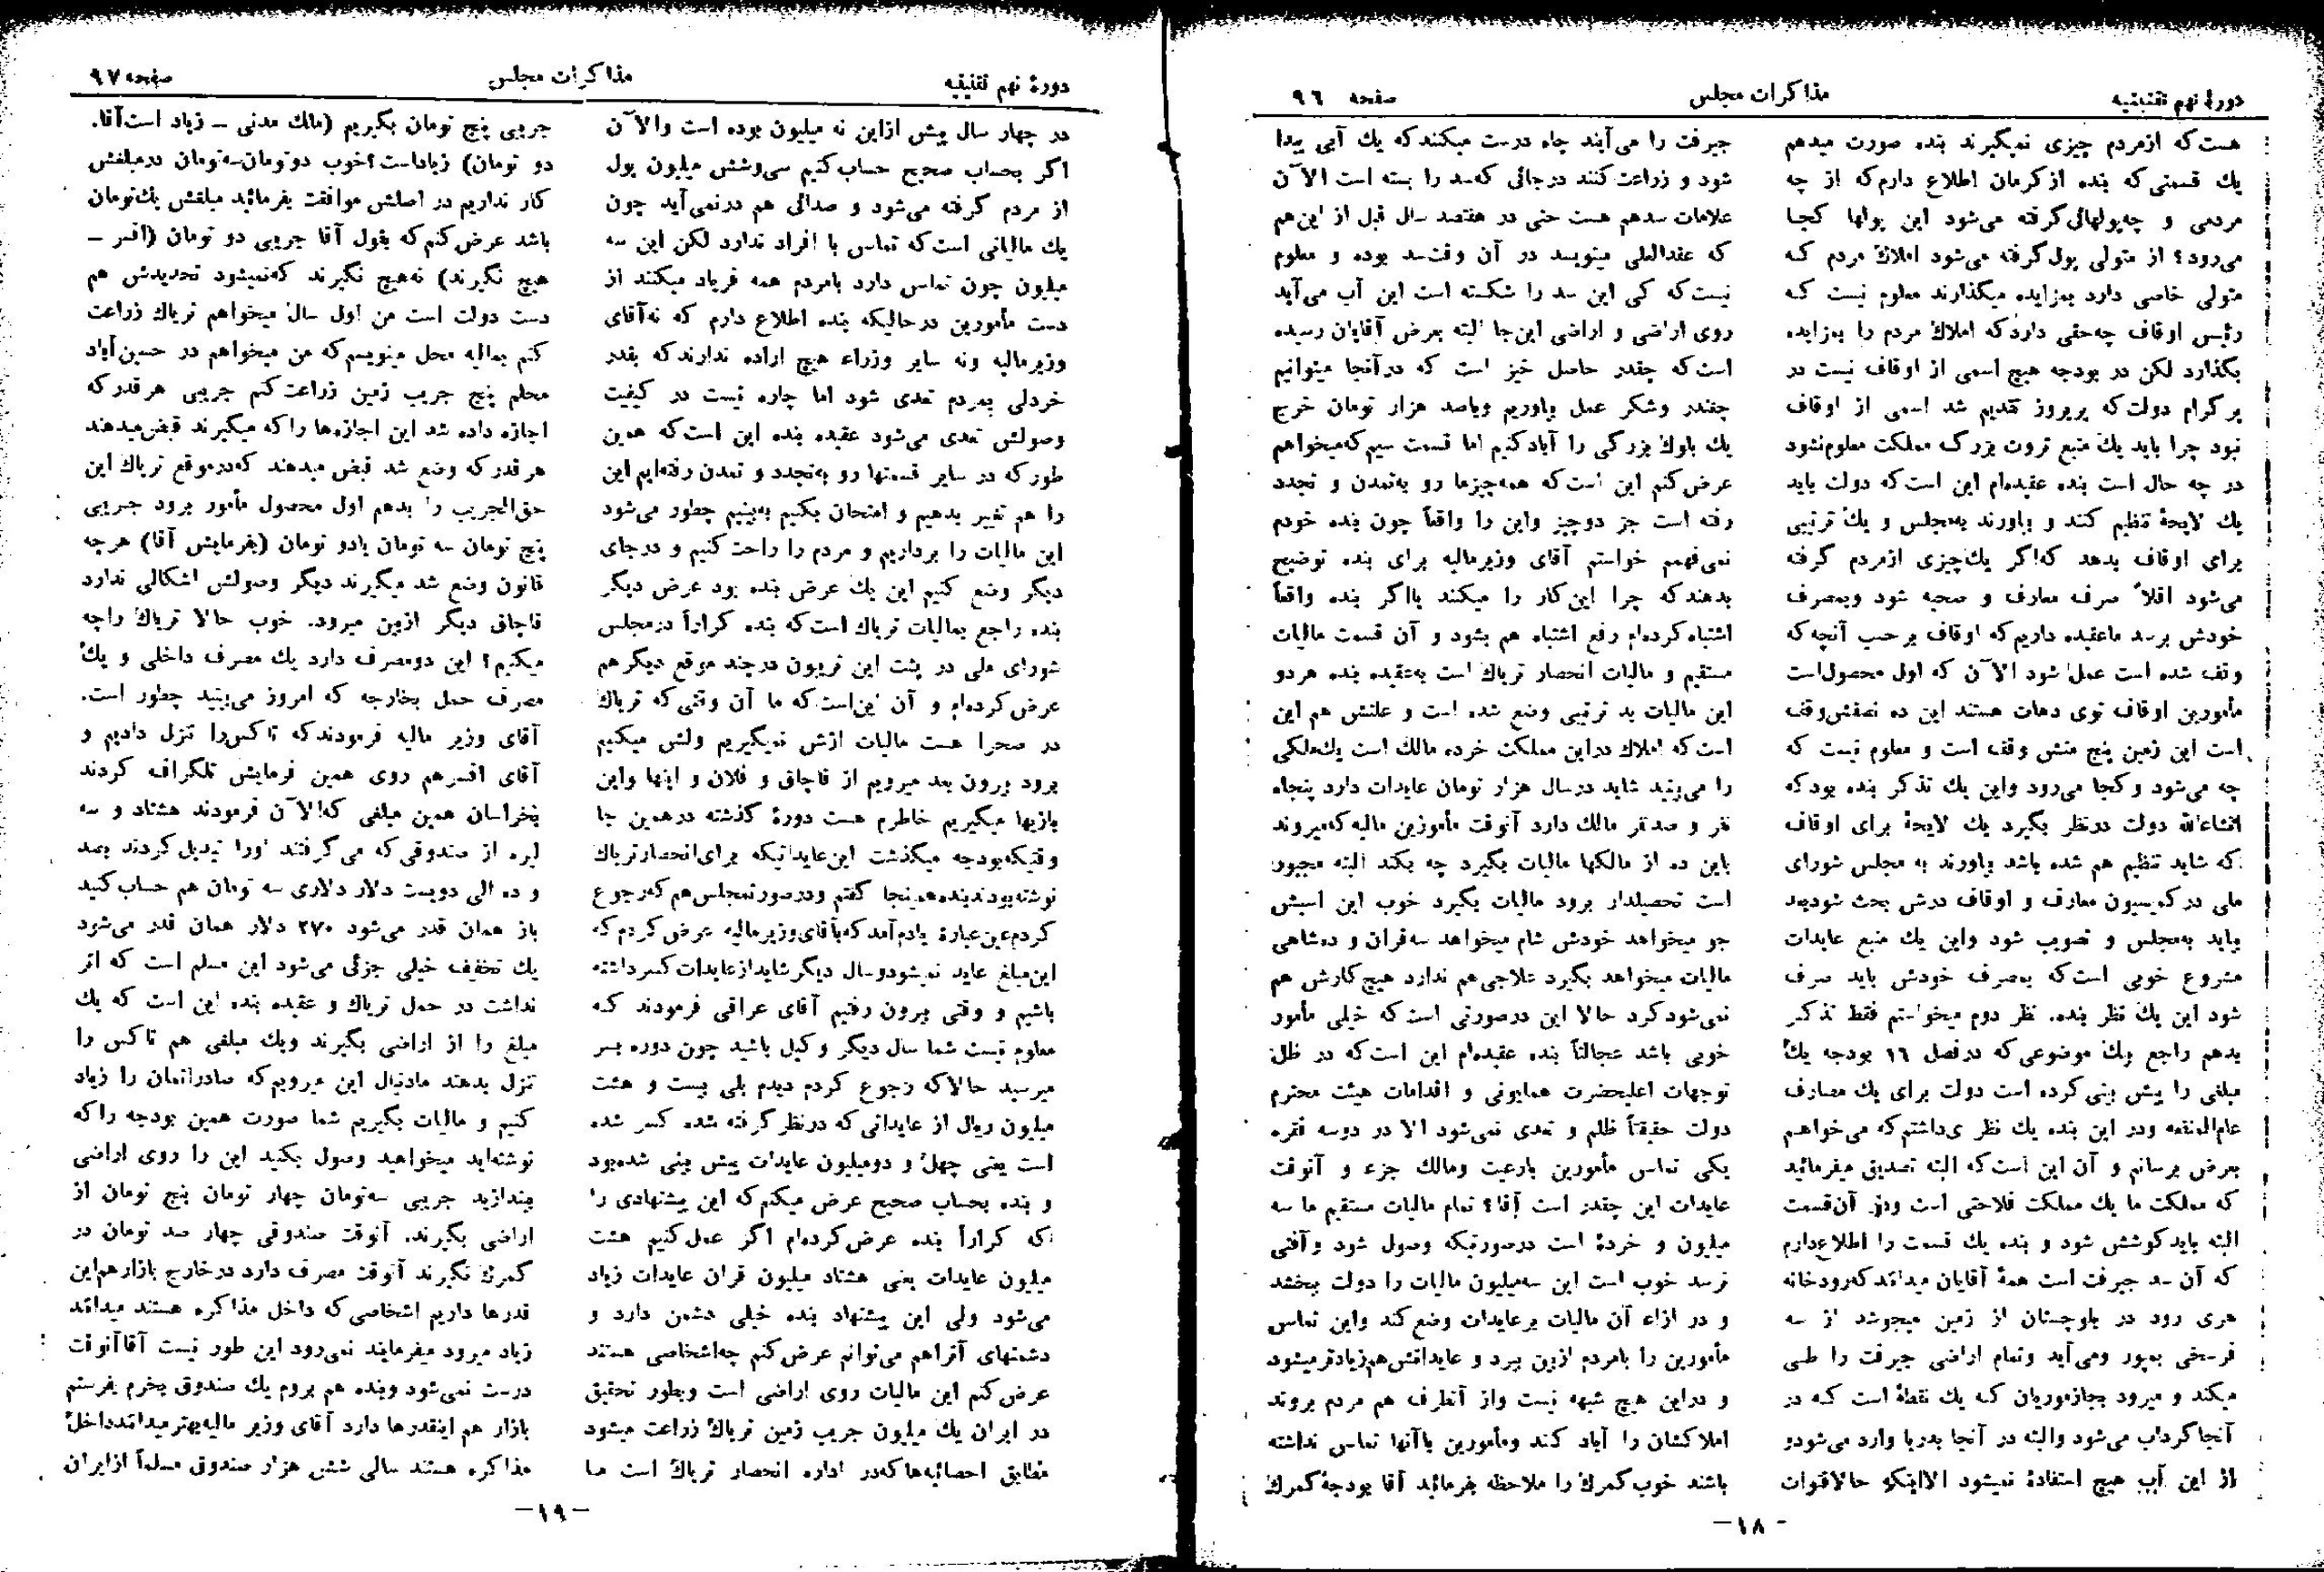 دورهٔ نهم تقنینیه
مذاکرات مجلس
صفحه ۹۶
هست که ازمردم چیزی نمیگیرند بنده صورت میدهم
یك قسمتی که بنده از کرمان اطلاع دارم که از چه
مردمی و چه‌پولهائی گرفته می‌شود این پولها کجا
می‌رود؟ از متولی پول گرفته می‌شود املاك مردم که
متولی خاصی دارد بمزایده میگذارند معلوم نیست که
رئیس اوقاف چه‌حقی دارد که املاك مردم را بمزایده
بگذارد لکن در بودجه هیچ اسمی از اوقاف نیست در
پرگرام دولت که پریروز تقدیم شد اسمی از اوقاف
نبود چرا باید یك منبع ثروت بزرگ مملکت معلوم‌نشود
در چه حال است بنده عقیده‌ام این است که دولت باید
یك لایحهٔ تنظیم کند و بیاورند به‌مجلس و یك ترتیبی
برای اوقاف بدهد که‌اگر یك‌چیزی ازمردم گرفته
می‌شود اقلاً صرف معارف و صحیه شود وبمصرف
خودش برسد ماعقیده داریم که اوقاف بر حسب آنچه که
وقف شده است عمل شود الآن که اول محصول‌است
مأمورین اوقاف توی دهات هستند این ده نصفش‌وقف
است این زمین پنج منش وقف است و معلوم نیست که
چه می‌شود و کجا می‌رود واین یك تذکر بنده بود که
انشاءالله دولت درنظر بگیرد یك لایحهٔ برای اوقاف
که شاید تنظیم هم شده باشد بیاورند به مجلس شورای
ملی در کمیسیون معارف و اوقاف درش بحث شودبعد
بیاید به‌مجلس و تصویب شود واین یك منبع عایدات
مشروع خوبی است که بمصرف خودش باید صرف
شود این یك نظر بنده. نظر دوم میخواستم فقط تذکر
بدهم راجع بیك موضوعی که در فصل ۱۶ بودجه یك
مبلغی را پیش بینی کرده است دولت برای یك مصارف
عام‌المنفعه ودر این بنده یك نظر ی‌داشتم که می‌خواهم
بعرض برسانم و آن این است که البته تصدیق میفرمائید
که مملکت ما یك مملکت فلاحتی است و آن‌قسمت
البته باید کوشش شود و بنده یك قسمت را اطلاع‌دارم
که آن سد جیرفت است همهٔ آقایان میدانند که‌رودخانه
هری رود در بلوچستان از زمین میجوشد از سه
فرسخی بمپور ومی‌آید وتمام اراضی جیرفت را طی
میکند و میرود بجازموریان که یك نقطهٔ است که در
آنجا گرداب می‌شود والبته در آنجا بدریا وارد می‌شودو
از این آب هیچ استفادهٔ نمیشود الااینکه حالاقوات
جیرفت را می‌آیند چاه درست میکنند که یك آبی پیدا
شود و زراعت کنند درجائی که‌سد را بسته است الآن
علامات سدهم هست حتی در هفتصد سال قبل از این‌هم
که عقدالعلی مینویسد در آن وقت‌سد بوده و معلوم
نیست که کی این سد را شکسته است این آب می‌آید
روی اراضی و اراضی این‌جا البته بعرض آقایان رسیده
است که چقدر حاصل خیز است که درآنجا میتوانیم
چغندر وشکر عمل بیاوریم وباصد هزار تومان خرج
یك بلوك بزرگی را آبادکنیم اما قسمت سیم که‌میخواهم
عرض کنم این است که همه‌چیزما رو به‌تمدن و تجدد
رفته است جز دوچیز واین را واقعاً چون بنده خودم
نمی‌فهمم خواستم آقای وزیرمالیه برای بنده توضیح
بدهند که چرا این‌کار را میکنند یااگر بنده واقعاً
اشتباه کرده‌ام رفع اشتباه هم بشود و آن قسمت مالیات
مستقیم و مالیات انحصار تریاك است به‌عقیده بنده هردو
این مالیات بد ترتیبی وضع شده است و علتش هم این
است که املاك دراین مملکت خرده مالك است یك‌ملکی
را می‌بینید شاید درسال هزار تومان عایدات دارد پنجاه
نفر و صد نفر مالك دارد آنوقت مأمورین مالیه که‌میروند
باین ده از مالکها مالیات بگیرد چه بکند البته مجبور
است تحصیلدار برود مالیات بگیرد خوب این اسبش
جو میخواهد خودش شام میخواهد سه‌قران و ده‌شاهی
مالیات میخواهد بگیرد علاجی‌هم ندارد هیچ‌کارش هم
نمی‌شود کرد حالا این درصورتی است که خیلی مأمور
خوبی باشد عجالتاً بنده عقیده‌ام این است که در ظل
توجهات اعلیحضرت همایونی و اقدامات هیئت محترم
دولت حقیقتاً ظلم و تعدی نمی‌شود الا در دوسه فقره
یکی تماس مأمورین بارعیت ومالك جزء و آنوقت
عایدات این چقدر است آقا؟ تمام مالیات مستقیم ما سه
میلیون و خردهٔ است درصورتیکه وصول شود وآفتی
نرسد خوب است این سه‌میلیون مالیات را دولت ببخشد
و در ازاء آن مالیات برعایدات وضع کند واین تماس
مأمورین را بامردم ازبین ببرد و عایداتش‌هم‌زیادترمیشود
و دراین هیچ شبهه نیست واز آنطرف هم مردم بروند
املاکشان را آباد کند ومأمورین باآنها تماس نداشته
باشند خوب گمرك را ملاحظه بفرمائید آقا بودجهٔ گمرك
-۱۸-
دورهٔ نهم تقنینیه
مذاکرات مجلس
صفحه ۹۷
در چهار سال پیش ازاین نه میلیون بوده است والآن
اگر بحساب صحیح حساب کنیم سی‌وشش میلیون پول
از مردم گرفته می‌شود و صدائی هم درنمی‌آید چون
یك مالیاتی است که تماس با افراد ندارد لکن این سه
میلیون چون تماس دارد بامردم همه فریاد میکنند از
دست مأمورین درحالیکه بنده اطلاع دارم که نه‌آقای
وزیرمالیه ونه سایر وزراء هیچ اراده ندارند که بقدر
خردلی بمردم تعدی شود اما چاره نیست در کیفیت
وصولش تعدی می‌شود عقیده بنده این است که همین
طور که در سایر قسمتها رو به‌تجدد و تمدن رفته‌ایم این
را هم تغییر بدهیم و امتحان بکنیم به‌بینیم چطور می‌شود
این مالیات را برداریم و مردم را راحت کنیم و درجای
دیگر وضع کنیم این یك عرض بنده بود عرض دیگر
بنده راجع بمالیات تریاك است که بنده کراراً درمجلس
شورای ملی در پشت این تریبون درچند موقع دیگرهم
عرض کرده‌ام و آن این‌است که ما آن وقتی که تریاك
در صحرا هست مالیات ازش نمیگیریم ولش میکنیم
برود بیرون بعد میرویم از قاچاق و فلان و اینها واین
بازیها میگیریم خاطرم هست دورهٔ گذشته درهمین جا
وقتیکه‌بودجه میگذشت این‌عایداتیکه برای‌انحصارتریاك
نوشته‌بودند‌بنده‌همینجا گفتم ودرصورتمجلس‌هم که‌رجوع
کردم‌عین‌عبارة یادم‌آمد که‌بآقای‌وزیرمالیه عرض کردم که
این‌مبلغ عاید نمیشودوسال دیگرشایدازعایدات‌کسرداشته
باشیم و وقتی بیرون رفتیم آقای عراقی فرمودند که
معلوم نیست شما سال دیگر وکیل باشید چون دوره بسر
میرسید حالاکه رجوع کردم دیدم بلی بیست و هشت
میلیون ریال از عایداتی که درنظر گرفته شده کسر شده
است یعنی چهل و دومیلیون عایدات پیش بینی شده‌بود
و بنده بحساب صحیح عرض میکنم که این پیشنهادی را
که کراراً بنده عرض کرده‌ام اگر عمل کنیم هشت
ملیون عایدات یعنی هشتاد میلیون قران عایدات زیاد
می‌شود ولی این پیشنهاد بنده خیلی دشمن دارد و
دشمنهای آنراهم می‌توانم عرض کنم چه‌اشخاصی هستند
عرض کنم این مالیات روی اراضی است وبطور تحقیق
در ایران یك میلیون جریب زمین تریاك زراعت میشود
مطابق احصائیه‌ها که‌در اداره انحصار تریاك است ما
جریبی پنج تومان بگیریم (مالك مدنی - زیاد است‌آقا.
دو تومان) زیاداست؟خوب دوتومان‌سه‌تومان درمبلغش
کار نداریم در اصلش موافقت بفرمائید مبلغش یك‌تومان
باشد عرض کنم که بقول آقا جریبی دو تومان (افسر -
هیچ نگیرند) نه‌هیچ نگیرند که‌نمیشود تحدیدش هم
دست دولت است من اول سال میخواهم تریاك زراعت
کنم بمالیه محل مینویسم که من میخواهم در حسین‌آباد
محلم پنج جریب زمین زراعت کنم جریبی هرقدر که
اجازه داده شد این اجازه‌ها را که میگیرند قبض‌میدهند
هر قدر که وضع شد قبض میدهند که‌درموقع تریاك این
حق‌الجریب را بدهم اول محصول مأمور برود جریبی
پنج تومان سه تومان یادو تومان (بفرمایش آقا) هرچه
قانون وضع شد میگیرند دیگر وصولش اشکالی ندارد
قاچاق دیگر ازبین میرود. خوب حالا تریاك راچه
میکنیم؟ این دومصرف دارد یك مصرف داخلی و یك
مصرف حمل بخارجه که امروز می‌بینید چطور است.
آقای وزیر مالیه فرمودند که تاکس‌را تنزل دادیم و
آقای افسرهم روی همین فرمایش تلگراف کردند
بخراسان همین مبلغی که‌الآن فرمودند هشتاد و سه
لیره از صندوقی که می‌گرفتند اورا تبدیل کردند بصد
و ده الی دویست دلار دلاری سه تومان هم حساب کنید
باز همان قدر می‌شود ۲۷۰ دلار همان قدر می‌شود
یك تخفیف خیلی جزئی می‌شود این مسلم است که اثر
نداشت در حمل تریاك و عقیده بنده این است که یك
مبلغ را از اراضی بگیرند ویك مبلغی هم تاکس را
تنزل بدهند مادنبال این میرویم که صادراتمان را زیاد
کنیم و مالیات بگیریم شما صورت همین بودجه را که
نوشته‌اید میخواهید وصول بکنید این را روی اراضی
بیندازید جریبی سه‌تومان چهار تومان پنج تومان از
اراضی بگیرند. آنوقت صندوقی چهار صد تومان در
گمرك نگیرند آنوقت مصرف دارد درخارج بازارهم‌این
قدرها داریم اشخاصی که داخل مذاکره هستند میدانند
زیاد میرود میفرمایند نمی‌رود این طور نیست آقاآنوقت
درست نمی‌شود وبنده هم بروم یك صندوق بخرم بفرستم
بازار هم اینقدرها دارد آقای وزیر مالیه‌بهترمیدانندداخل
مذاکره هستند سالی شش هزار صندوق مسلماً ازایران
-۱۹-